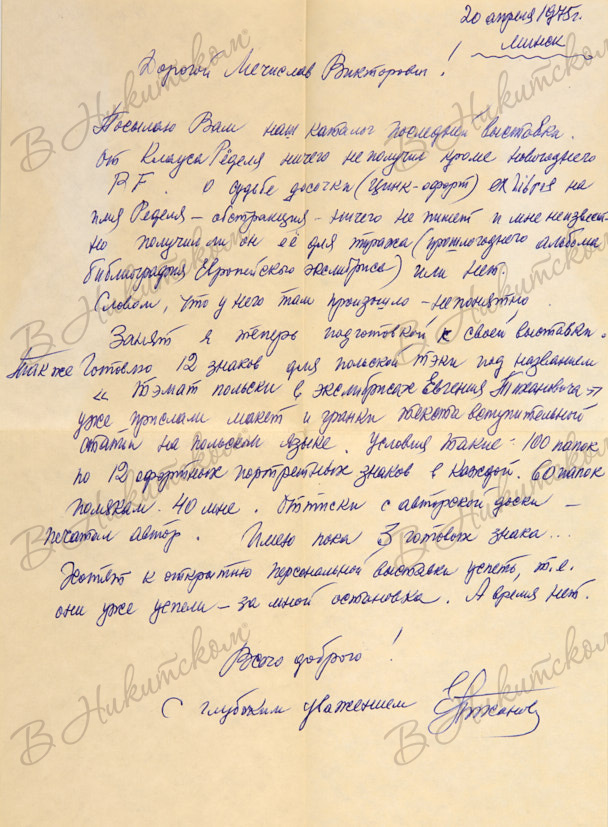 20 апреля 1975г.
Минск
Дорогой Мечислав Викторович!
Посылаю Вам наш каталог последней выставки.
От Клауса Рёделя ничего не получил кроме новогоднего
P.F. О судьбе досочки (цинк-офорт) ex libris на
имя Рёделя – абстракция – ничего не пишет и мне неизвест-
но получил ли он её для тиража (прошлогоднего альбома
библиография Европейского экслибриса) или нет.
Словом, что у него там произошло – непонятно.
Занят я теперь подготовкой к своей выставки.
Также готовлю 12 знаков для польской тэки под названием
« Тэмат польски в экслибрисах Евгения Тихановича »
уже прислали макет и гранки текста вступительной
статьи на польском языке. Условия такие: 100 папок
по 12 офортных портретных знаков в каждой. 60 папок
полякам. 40 мне. Оттиски с авторской доски –
печатал автор. Имею пока 3 готовых знака...
Хотят к открытию персональной выставки успеть, т.е.
они уже успели – за мной остановка. А время нет.
Всего доброго!
С глубоким уважением ЕТиханов
В Никитском
В Никитском
В Никитском
В Никитском
В Никитском
В Никитском
В Никитском
В Никитском